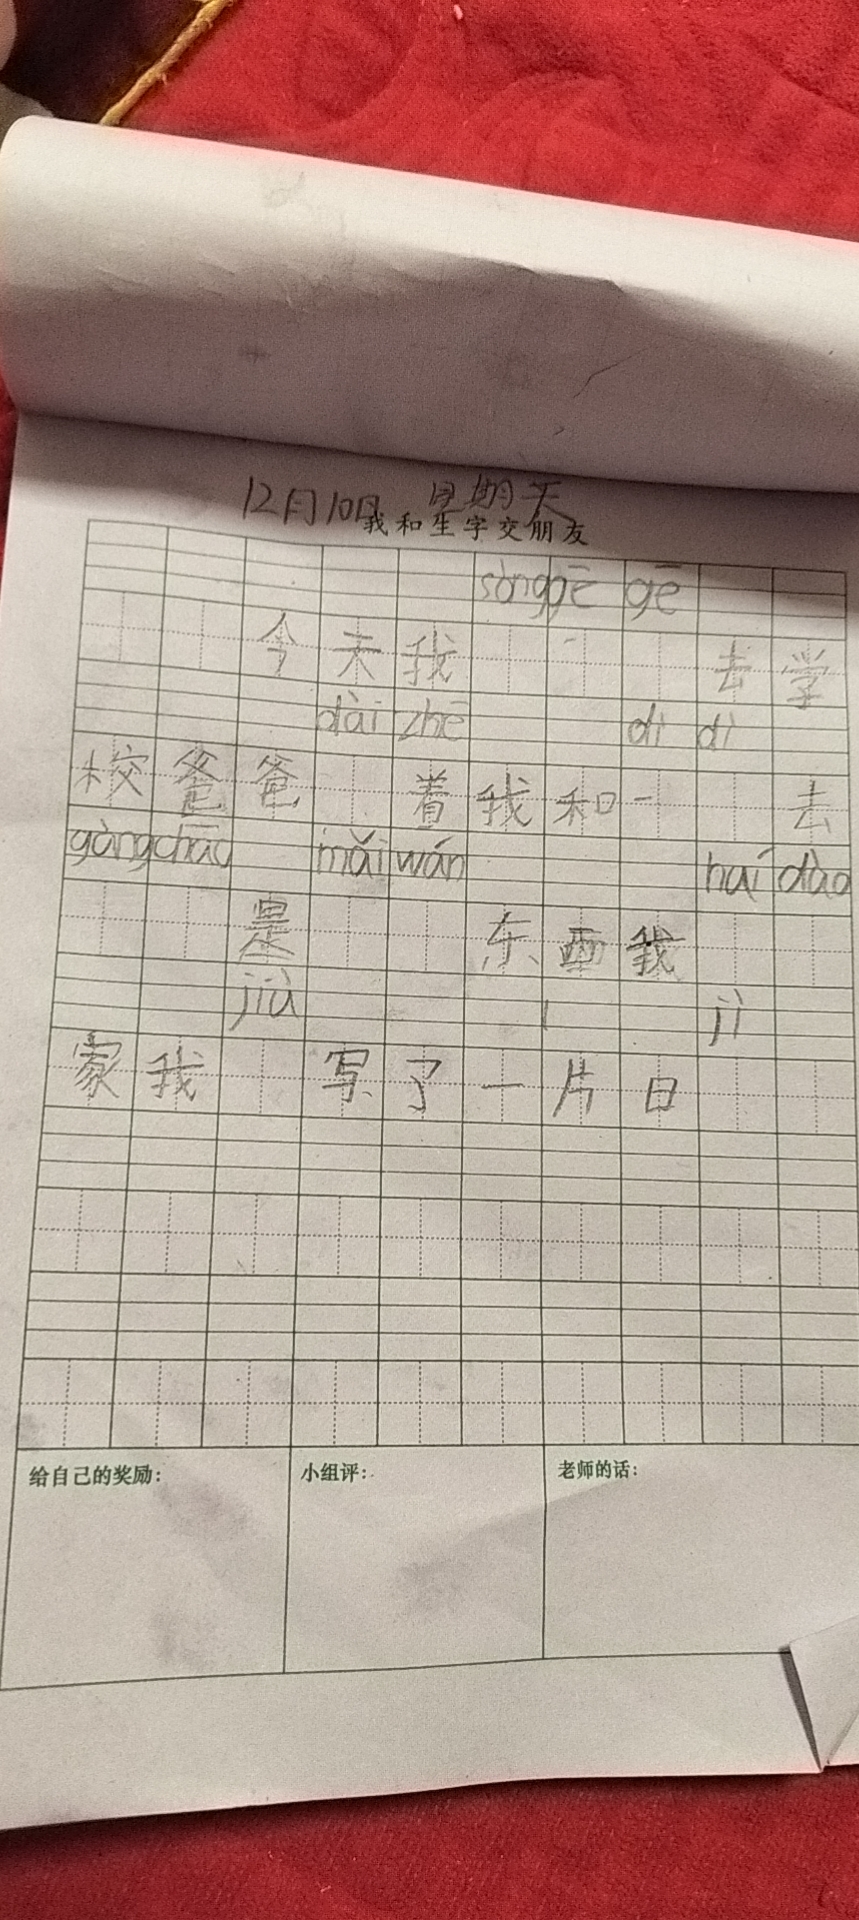 12月10日 星期天
我和生字交朋友
sònggē gē
今天我 去学
dài zhē dì dì
校爸爸 着我和 去
gàngchāo mǎi wán hái dào
是 东西我
jiù jì
家我 写了一片日
给自己的奖励: 小组评: 老师的话: